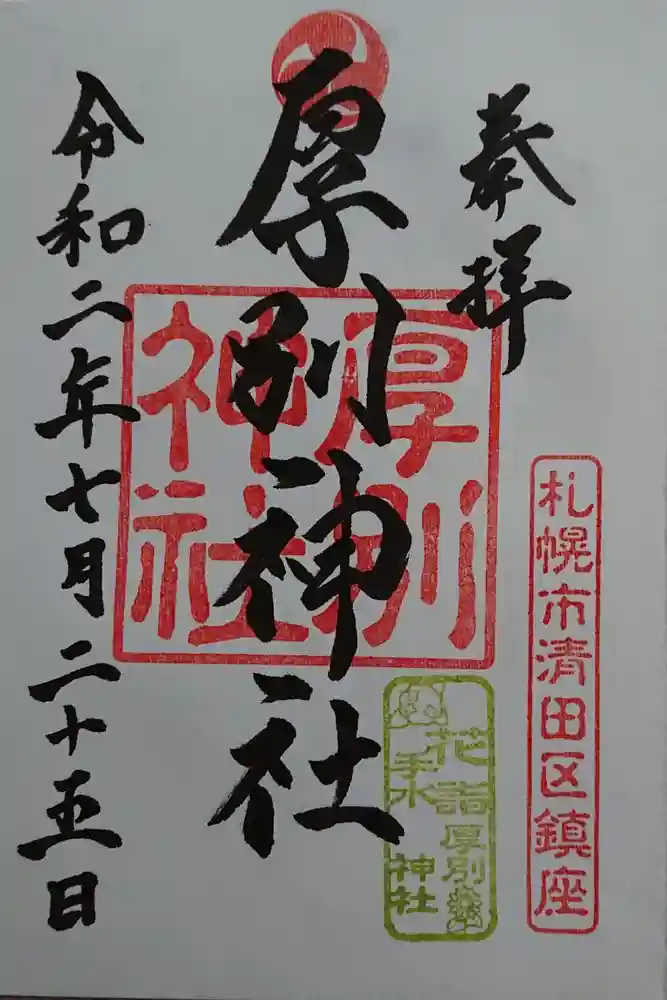 奉拝
札幌市清田区鎮座
厚別神社
厚別
神社
花詣
手水
厚別
神社
令和二年七月二十五日